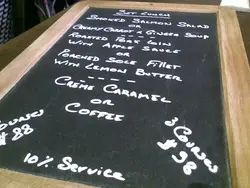 Set Lunch
Smoked Salmon Salad
or
Creamy Carrot & Ginger Soup
Roasted Pork Loin
With Apple Sauce
or
Poached Sole Fillet
With Lemon Butter
Crème Caramel
or
Coffee
Courses
$88
3 Courses
$98
10% Service